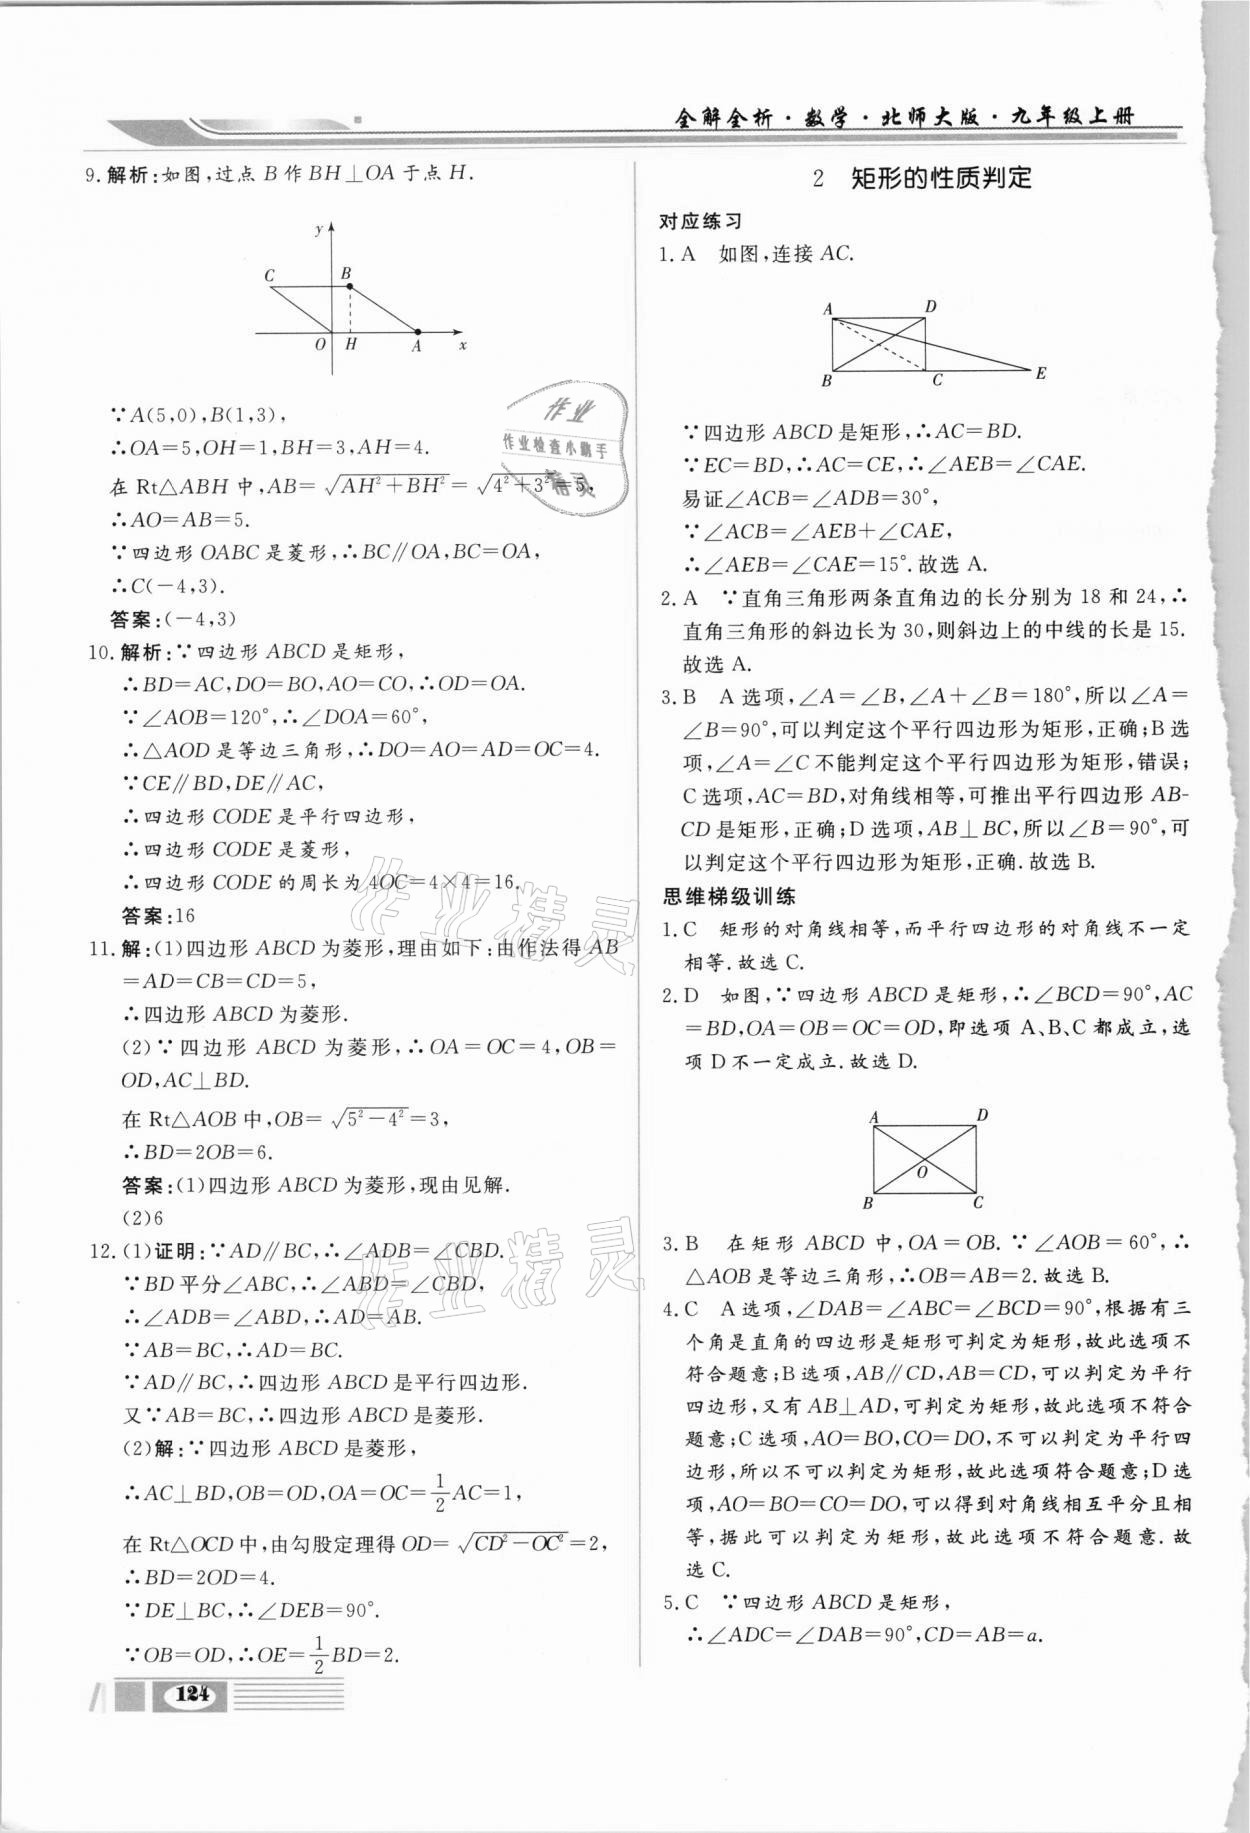 全解全析·数学·北师大版·九年级上册
9. 解析:如图,过点 B 作 BH⊥OA 于点 H.
y
C
B
O
H
A
x
∵A(5,0),B(1,3),
∴OA=5,OH=1,BH=3,AH=4.
在 Rt△ABH 中,AB=√(AH²+BH²)=√(4²+3²)=5,
∴AO=AB=5.
∵四边形 OABC 是菱形,∴BC∥OA,BC=OA,
∴C(-4,3).
答案:(-4,3)
10. 解析:∵四边形 ABCD 是矩形,
∴BD=AC,DO=BO,AO=CO,∴OD=OA.
∵∠AOB=120°,∴∠DOA=60°,
∴△AOD 是等边三角形,∴DO=AO=AD=OC=4.
∵CE∥BD,DE∥AC,
∴四边形 CODE 是平行四边形,
∴四边形 CODE 是菱形,
∴四边形 CODE 的周长为 4OC=4×4=16.
答案:16
11. 解:(1)四边形 ABCD 为菱形,理由如下:由作法得 AB
=AD=CB=CD=5,
∴四边形 ABCD 为菱形.
(2)∵四边形 ABCD 为菱形,∴OA=OC=4,OB=
OD,AC⊥BD.
在 Rt△AOB 中,OB=√(5²-4²)=3,
∴BD=2OB=6.
答案:(1)四边形 ABCD 为菱形,现由见解.
(2)6
12. (1)证明:∵AD∥BC,∴∠ADB=∠CBD.
∵BD 平分∠ABC,∴∠ABD=∠CBD,
∴∠ADB=∠ABD,∴AD=AB.
∵AB=BC,∴AD=BC.
∵AD∥BC,∴四边形 ABCD 是平行四边形.
又∵AB=BC,∴四边形 ABCD 是菱形.
(2)解:∵四边形 ABCD 是菱形,
∴AC⊥BD,OB=OD,OA=OC=1/2AC=1,
在 Rt△OCD 中,由勾股定理得 OD=√(CD²-OC²)=2,
∴BD=2OD=4.
∵DE⊥BC,∴∠DEB=90°.
∵OB=OD,∴OE=1/2BD=2.
124
2 矩形的性质判定
对应练习
1. A 如图,连接 AC.
A
D
B
C
E
∵四边形 ABCD 是矩形,∴AC=BD.
∵EC=BD,∴AC=CE,∴∠AEB=∠CAE.
易证∠ACB=∠ADB=30°,
∵∠ACB=∠AEB+∠CAE,
∴∠AEB=∠CAE=15°.故选 A.
2. A ∵直角三角形两条直角边的长分别为 18 和 24,∴
直角三角形的斜边长为 30,则斜边上的中线的长是 15.
故选 A.
3. B A 选项,∠A=∠B,∠A+∠B=180°,所以∠A=
∠B=90°,可以判定这个平行四边形为矩形,正确;B 选
项,∠A=∠C 不能判定这个平行四边形为矩形,错误;
C 选项,AC=BD,对角线相等,可推出平行四边形 AB-
CD 是矩形,正确;D 选项,AB⊥BC,所以∠B=90°,可
以判定这个平行四边形为矩形,正确.故选 B.
思维梯级训练
1. C 矩形的对角线相等,而平行四边形的对角线不一定
相等.故选 C.
2. D 如图,∵四边形 ABCD 是矩形,∴∠BCD=90°,AC
=BD,OA=OB=OC=OD,即选项 A、B、C 都成立,选
项 D 不一定成立.故选 D.
A
D
O
B
C
3. B 在矩形 ABCD 中,OA=OB.∵∠AOB=60°,∴
△AOB 是等边三角形,∴OB=AB=2.故选 B.
4. C A 选项,∠DAB=∠ABC=∠BCD=90°,根据有三
个角是直角的四边形是矩形可判定为矩形,故此选项不
符合题意;B 选项,AB∥CD,AB=CD,可以判定为平行
四边形,又有 AB⊥AD,可判定为矩形,故此选项不符合
题意;C 选项,AO=BO,CO=DO,不可以判定为平行四
边形,所以不可以判定为矩形,故此选项符合题意;D 选
项,AO=BO=CO=DO,可以得到对角线相互平分且相
等,据此可以判定为矩形,故此选项不符合题意.故
选 C.
5. C ∵四边形 ABCD 是矩形,
∴∠ADC=∠DAB=90°,CD=AB=a.
作业
作业检查小助手
精灵
作业精灵
作业精灵